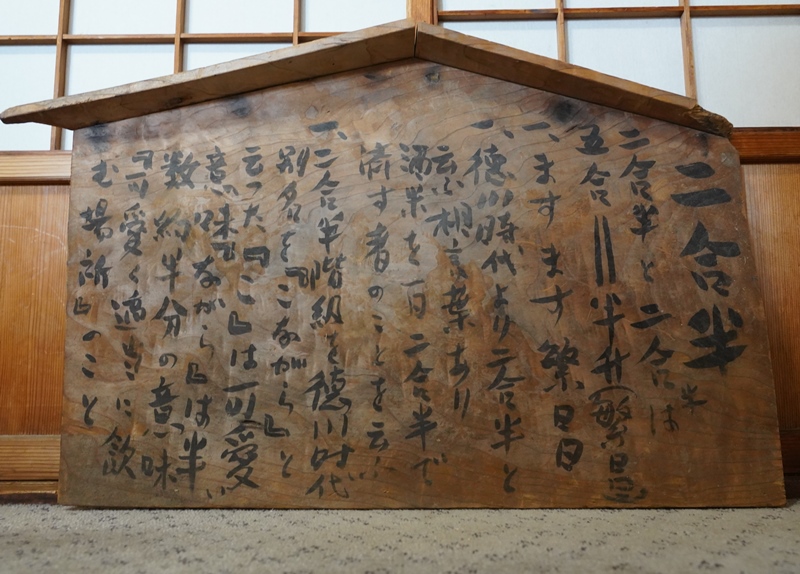 二合半
二合半と二合は
五合 || 半升(繁昌)
一、ますます繁昌
一、徳川時代より二合半と
云ふ相言葉あり
酒米を一日二合半で
済す者のことを云ふ
一、二合半階級を徳川時代
別名を『こながら』と
云つた『こ』は可愛い
意味『ながら』は半
数約半分の意味
『可愛く適当に飲
む場所』のこと